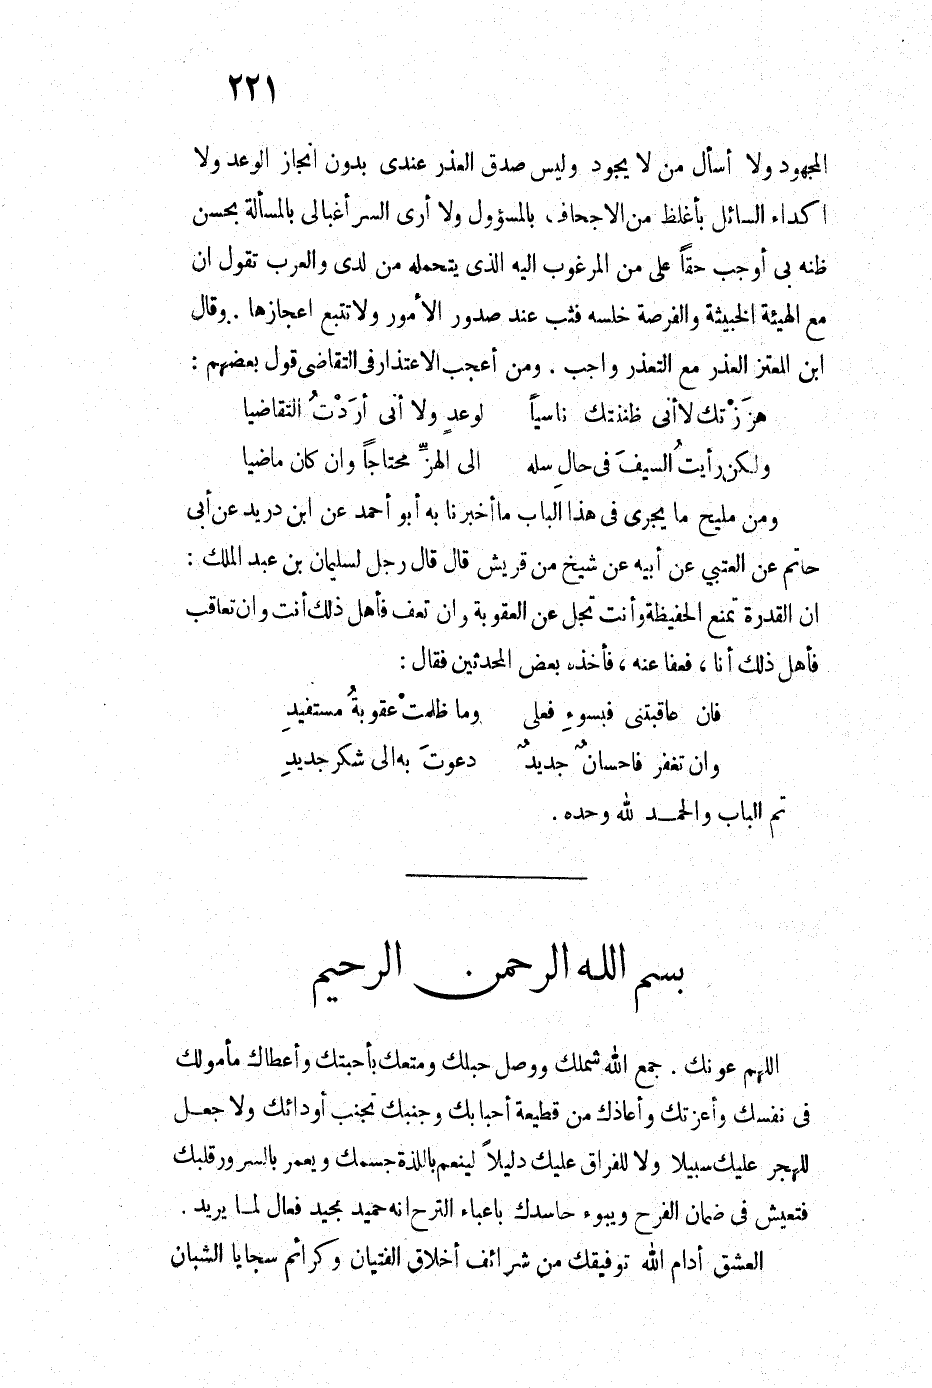 ٢٢١
المجهود ولا أسأل من لا يجود وليس صدق العذر عندى بدون انجاز الوعد ولا
اكداء السائل بأغلظ من الاجحاف بالمسؤول ولا أرى السر أغبالى بالمسألة بحسن
ظنه بى أوجب حقاً على من المرغوب اليه الذى يتحمله من لدى والعرب تقول ان
مع الهيئة الخبيثة والفرصة خلسه فثب عند صدور الأمور ولا تتبع اعجازها . وقال
ابن المعتز العذر مع التعذر واجب . ومن أعجب الاعتذار فى التقاضى قول بعضهم :
هزَزْتك لا أنى ظننتك ناسياً لوعدٍ ولا أنى أرَدْتُ التقاضيا
ولكن رأيتُ السيفَ فى حالِ سله الى الهزِّ محتاجاً وان كان ماضيا
ومن مليح ما يجرى فى هذا الباب ما أخبرنا به أبو أحمد عن ابن دريد عن أبى
حاتم عن العتبي عن أبيه عن شيخ من قريش قال قال رجل لسليمان بن عبد الملك :
ان القدرة تمنع الحفيظة وأنت تجل عن العقوبة وان تعف فأهل ذلك أنت وان تعاقب
فأهل ذلك أنا ، فعفا عنه ، فأخذه بعض المحدثين فقال :
فان عاقبتنى فبسوءِ فعلى وما ظلمتْ عقوبةُ مستفيدِ
وان تغفر فاحسانٌ جديدٌ دعوتَ به الى شكر جديدِ
تم الباب والحمـد لله وحده .
بسم الله الرحمن الرحيم
اللهم عونك . جمع الله شملك ووصل حبلك ومتعك بأحبتك وأعطاك مأمولك
فى نفسك وأعزتك وأعاذك من قطيعة أحبابك وجنبك تجنب أودائك ولا جعـل
للهجر عليك سبيلا ولا للفراق عليك دليلاً لينعم باللذة جسمك ويعمر بالسرور قلبك
فتعيش فى ضمان الفرح ويبوء حاسدك باعباء الترح انه حميد مجيد فعال لمـا يريد .
العشق أدام الله توفيقك من شرائف أخلاق الفتيان وكرائم سجايا الشبان